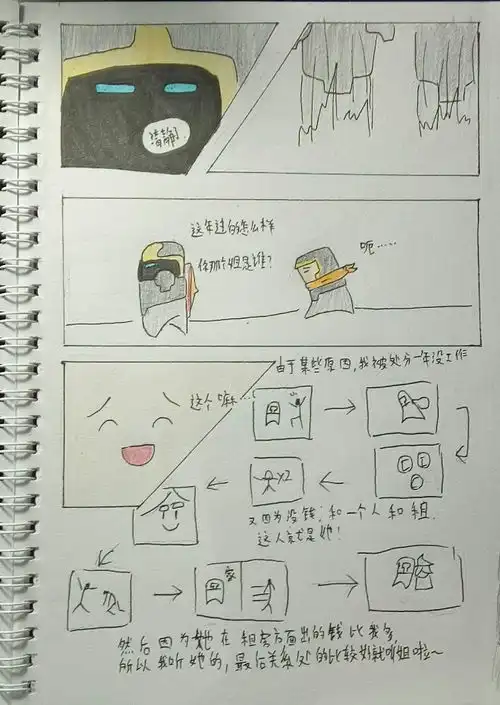 这年过的怎么样
你那个姐是谁?
呃……
这个嘛…
由于某些原因,我被处分一年没工作
X2
又因为没钱,和一个人和租
这人就是她!
家
然后因为她在租房方面出的钱比我多,
所以我听她的,最后关系处的比较好就叫姐啦~